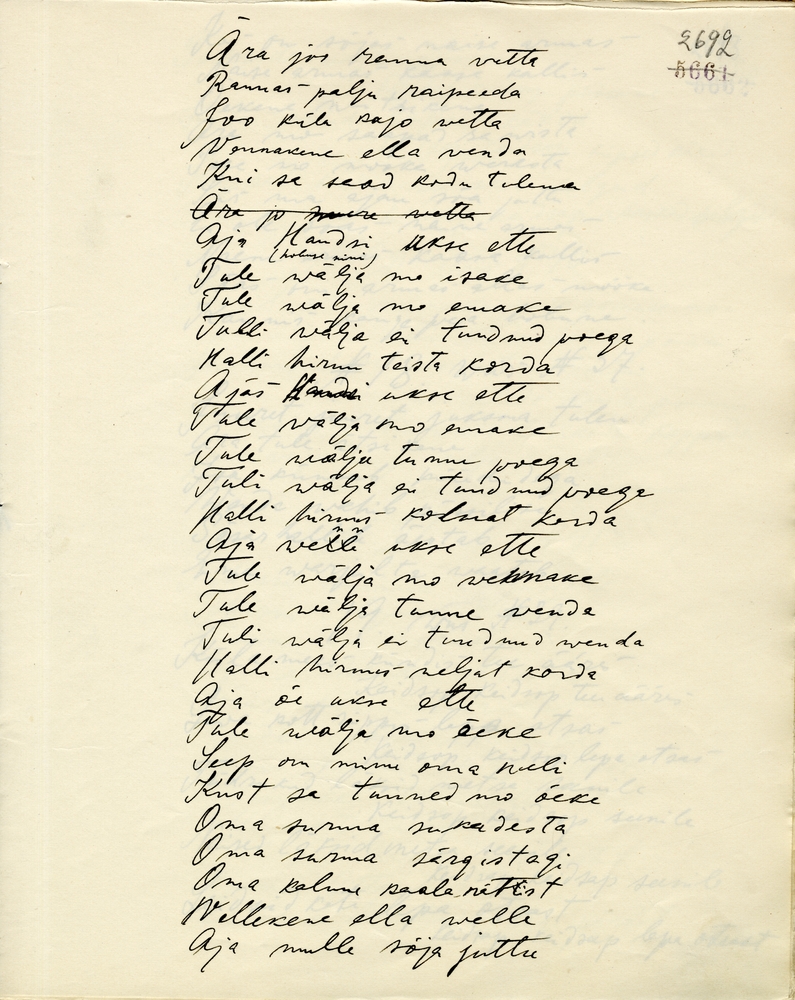 2692
5661
Ära joo ranna vetta
Rannas palju raipeeda
Joo küla kajo vetta
Vennakene ella venda
Kui sa saad kodu tulema
Ära jo mere vetta
Aja Handsi ukse ette
(hobuse nimi)
Tule wälja mo isake
Tule wälja mo emake
Tulli wälja ei tundnud poega
Halli hirnu teista korda
Ajas Handsi ukse ette
Tule wälja mo emake
Tule wälja tunne poega
Tuli wälja ei tundnud poega
Halli hirnus kolmat korda
Aja welle ukse ette
Tule wälja mo wennake
Tule wälja tunne venda
Tuli wälja ei tundnud wenda
Halli hirnus neljat korda
Aja õe ukse ette
Tule wälja mo õeke
Seep on minu oma weli
Kust sa tunned mo õeke
Oma surma sukadesta
Oma surma särgistagi
Oma kalmu kaelarättist
Wellekene ella welle
Aja mulle sõja juttu